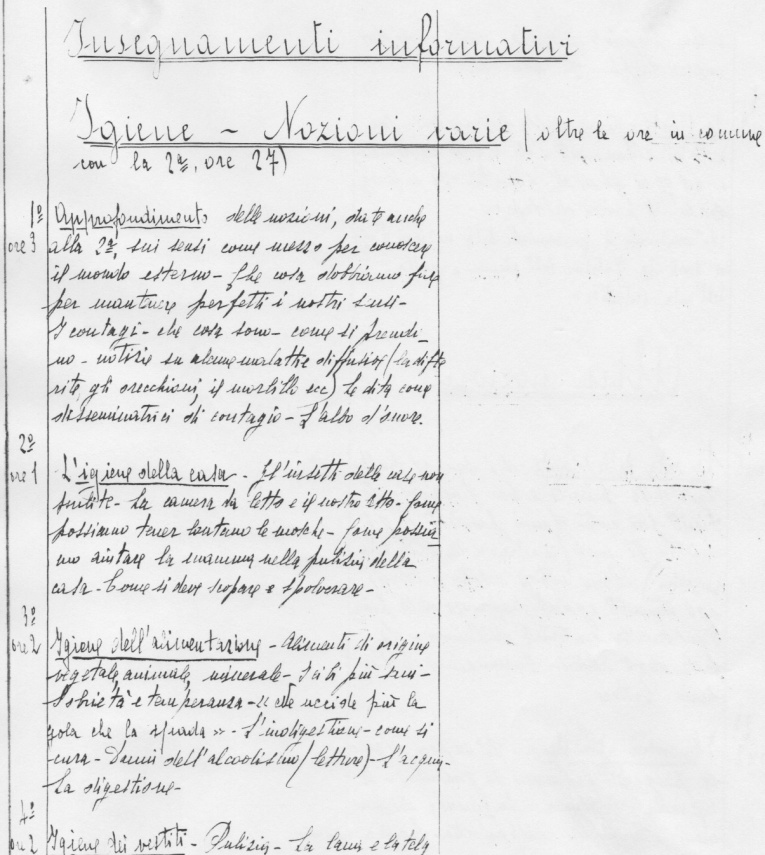 Insegnamenti informativi
Igiene - Nozioni varie (oltre le ore in comune
con la 2ª, ore 27)
1º
ore 3
Approfondimento delle nozioni, date anche
alla 2ª, sui sensi come mezzo per conoscere
il mondo esterno - Che cosa dobbiamo fare
per mantenere perfetti i nostri sensi -
I contagi - che cosa sono - come si prendo_
no - notizie su alcune malattie diffusive (la difte
rite, gli orecchioni, il morbillo ecc) Le dita come
disseminatrici di contagio - L'albo d'onore.
2º
ore 1
L'igiene della casa - Gl'insetti delle case non
pulite - La camera da letto e il nostro letto - Come
possiamo tener lontano le mosche - Come possia
mo aiutare la mamma nella pulizia della
casa - Come si deve scopare e spolverare -
3º
ore 2
Igiene dell'alimentazione - Alimenti di origine
vegetale, animale, minerale - I cibi più sani -
Sobrietà e temperanza - « Ne uccide più la
gola che la spada » - L'indigestione - come si
cura - Danni dell'alcoolismo (letture) - L'acqua -
La digestione -
4º
ore 2
Igiene dei vestiti - Pulizia - La lana e la tela